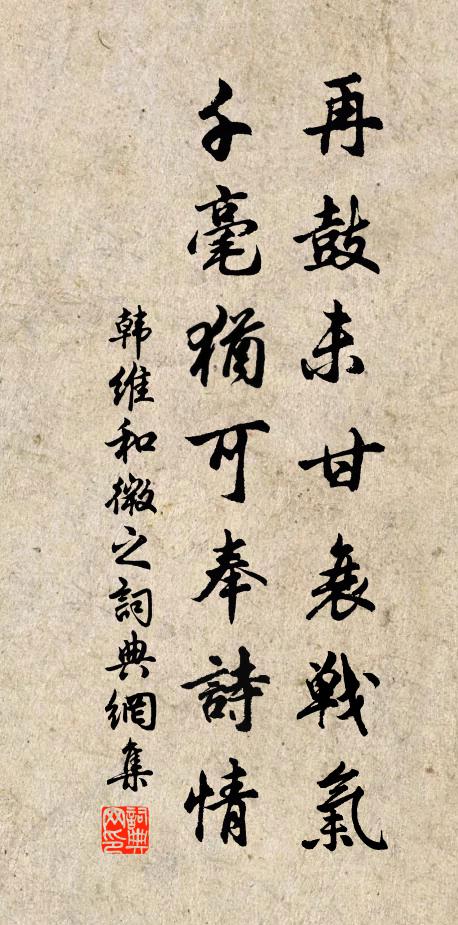 再鼓未甘衰戰氣
千毫猶可奉詩情
韩維和微之詞典網集
詞典网印